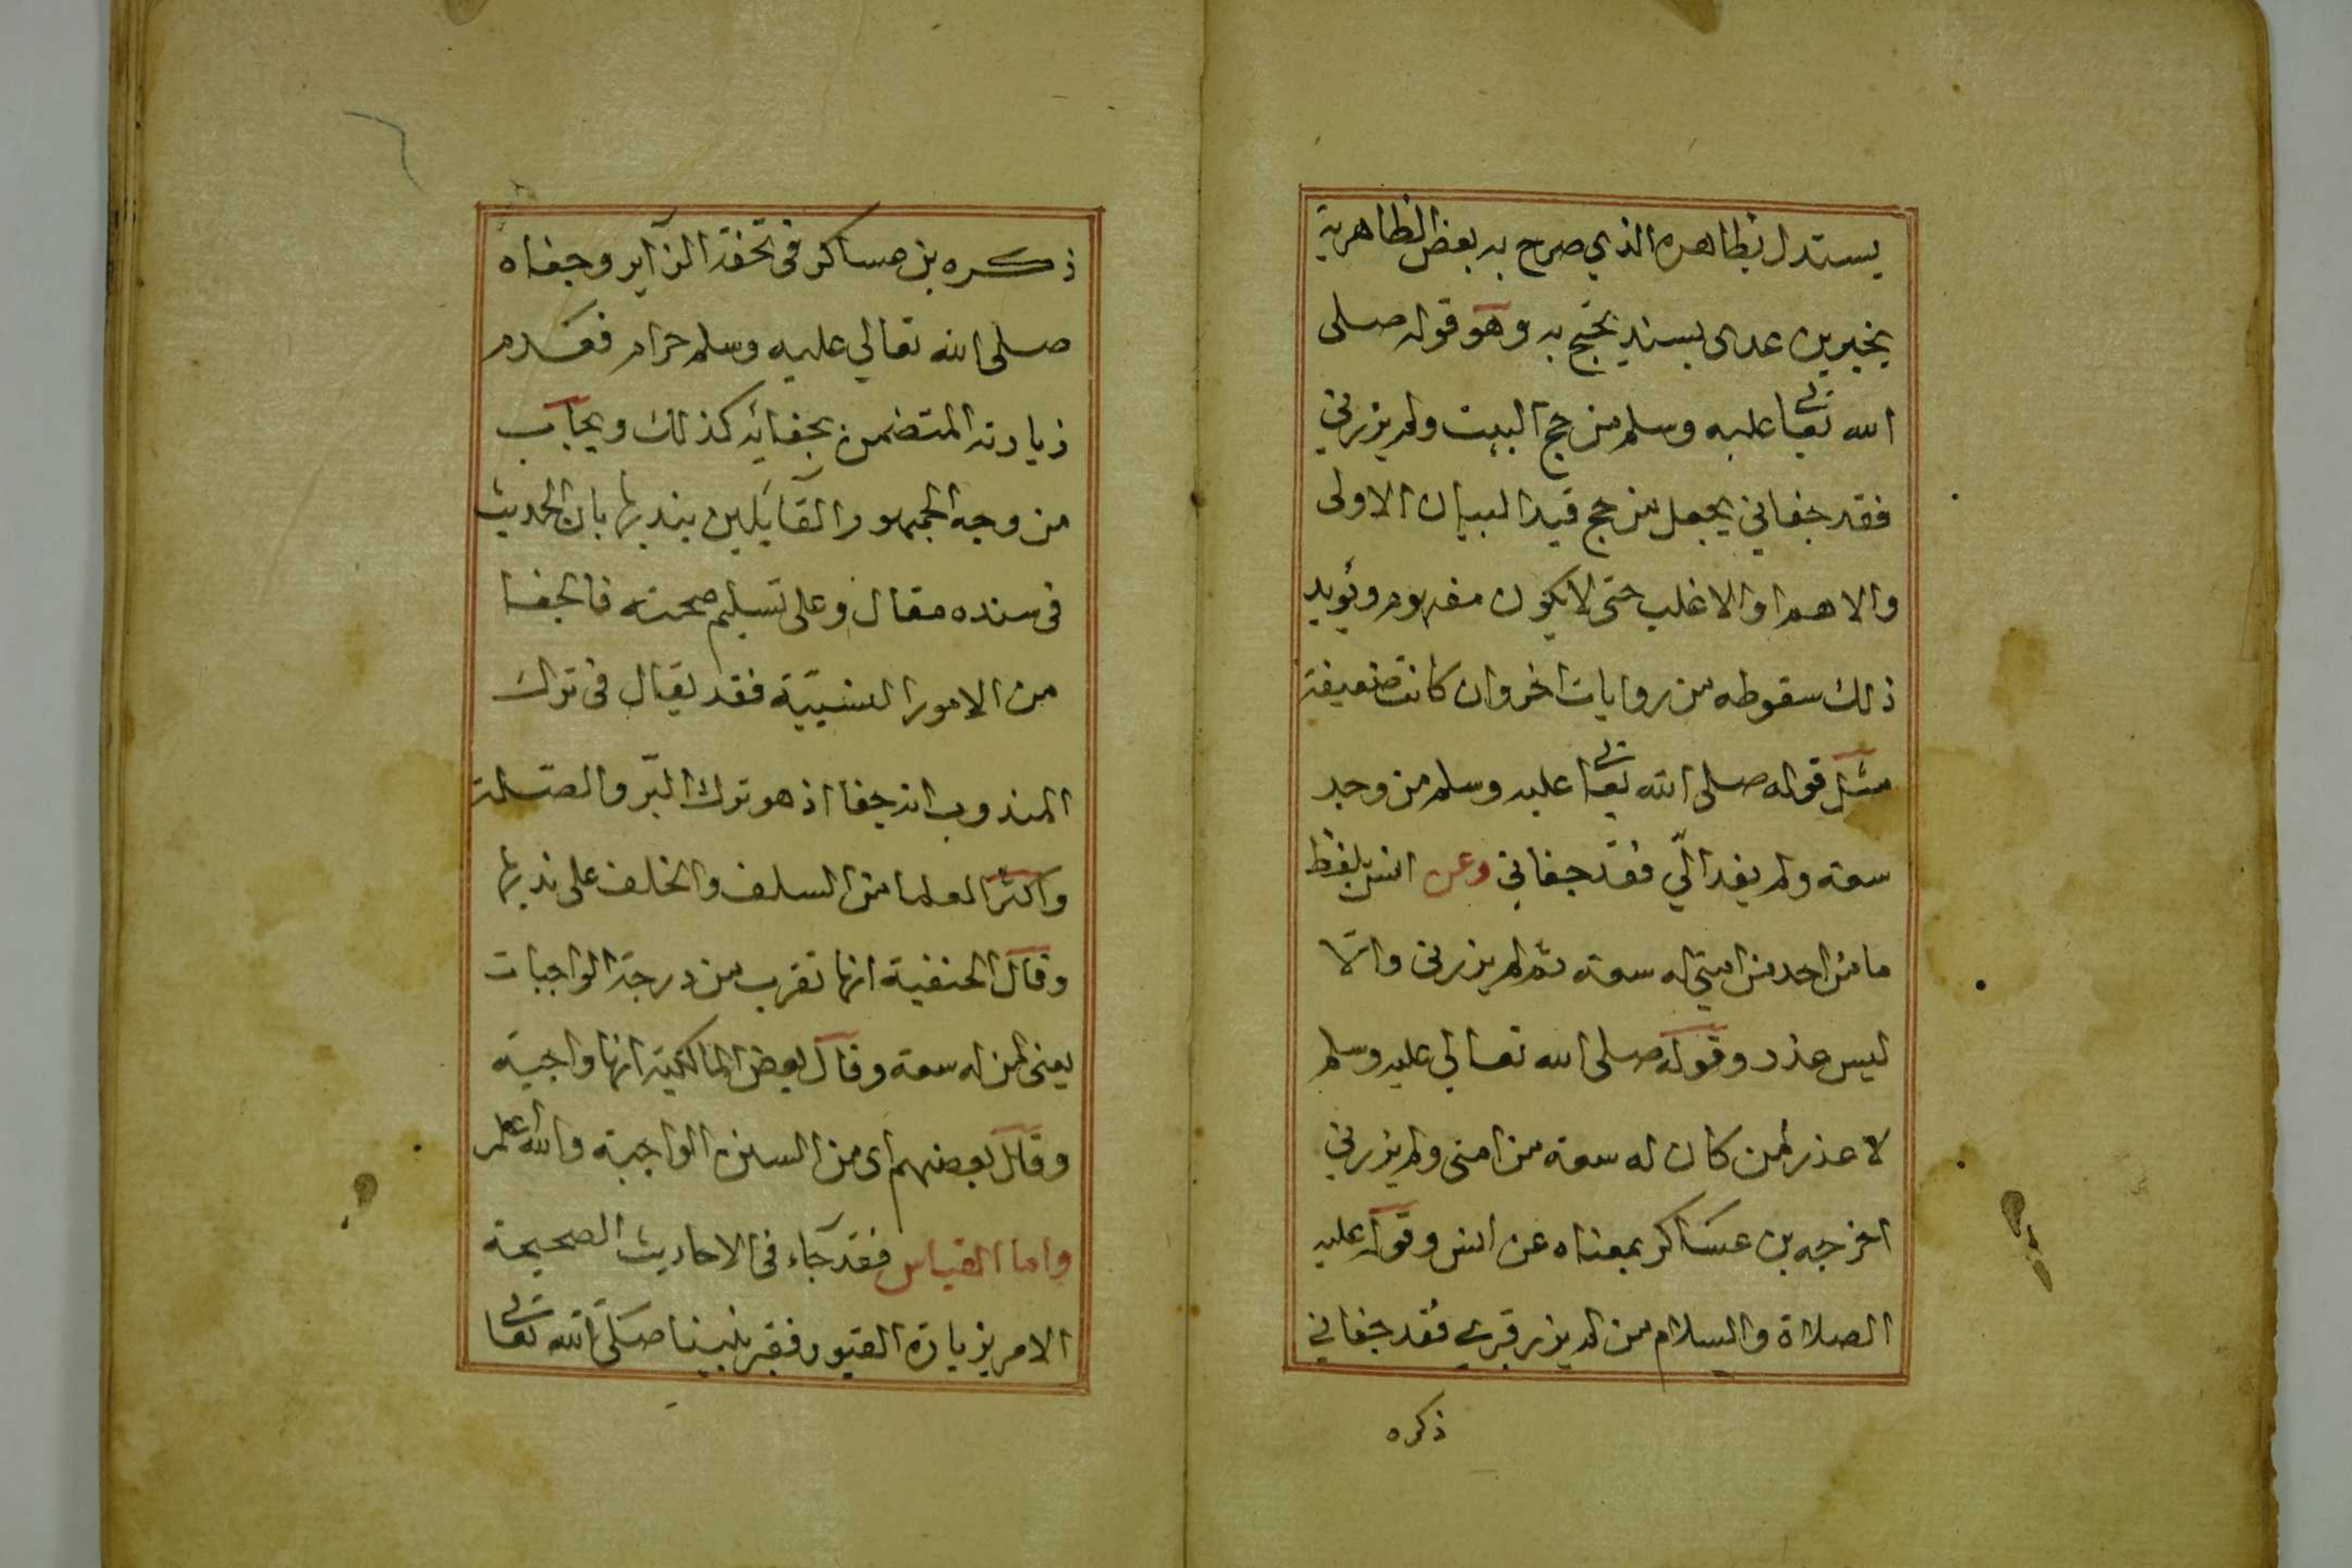 يستدل بظاهره الذي صرح به بعض الظاهرية
بخبر بن عدى بسند يحتج به وهو قوله صلى
الله تعالى عليه وسلم من حج البيت ولم يزرني
فقد جفاني بجعل من حج قيد البيان الاولى
والاهم او الاغلب حتى لا يكون مفهوم ويؤيد
ذلك سقوطه من روايات اخر وان كانت ضعيفة
مثل قوله صلى الله تعالى عليه وسلم من وجد
سعة ولم يفد الّي فقد جفاني وعن انس بلفظ
ما من احد من امتي له سعة ثم لم يزرني والا
ليس عذر وقوله صلى الله تعالى عليه وسلم
لا عذر لمن كان له سعة من امتى ولم يزرني
اخرجه بن عساكر بمعناه عن انس وقوله عليه
الصلاة والسلام من لم يزر قبري فقد جفاني
ذكره
ذكره بن عساكر في تحفة الزآير وجفاه
صلى الله تعالي عليه وسلم حرام فعدم
زيارته المتضمن بجفائه كذلك ويجاب
من وجه الجمهور القآئلين بندبها بان الحديث
في سنده مقال وعلى تسليم صحته فالجفا
من الامور النسبيّة فقد يقال في ترك
المندوب انه جفا اذ هو ترك البّر والصّلة
واكثر العلما من السلف والخلف على ندبها
وقال الحنفية انها تقرب من درجة الواجبات
يعنى لمن له سعة وقال بعض المالكية انها واجبة
وقال بعضهم اى من السنن الواجبة والله اعلم
واما القياس فقد جآء في الاحاديث الصحيحة
الامر بزيارة القبور فقبر نبينا صلى الله تعالى